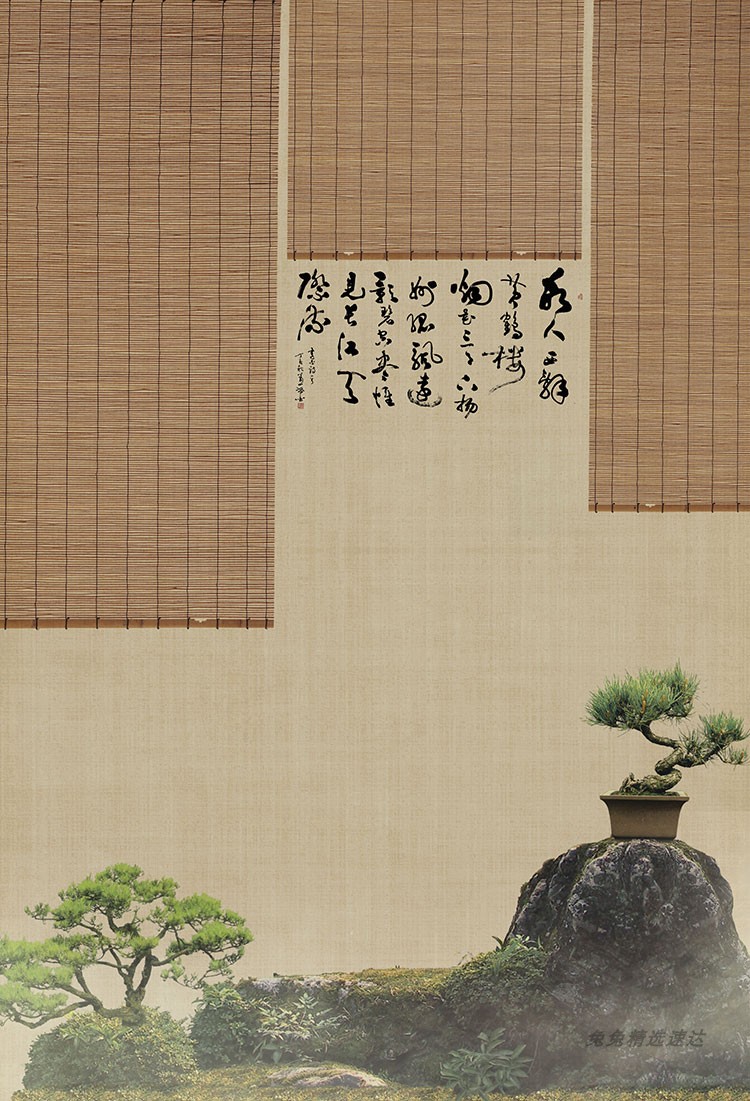 故人西辭
黄鶴楼
烟花三月下揚
州孤帆遠
影碧空尽惟
見长江天
際流
兔兔精选速达